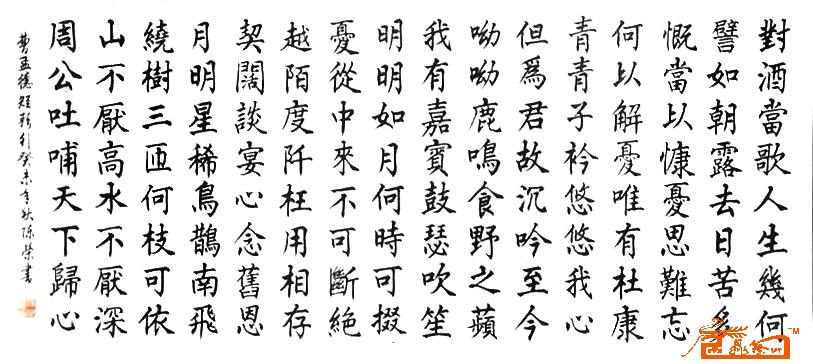 對酒當歌人生幾何
譬如朝露去日苦多
慨當以慷憂思難忘
何以解憂唯有杜康
青青子衿悠悠我心
但爲君故沉吟至今
呦呦鹿鳴食野之蘋
我有嘉賓鼓瑟吹笙
明明如月何時可掇
憂從中來不可斷絕
越陌度阡枉用相存
契闊談宴心念舊恩
月明星稀烏鵲南飛
繞樹三匝何枝可依
山不厭高水不厭深
周公吐哺天下歸心
曹孟德短歌行癸未年秋陳榮書